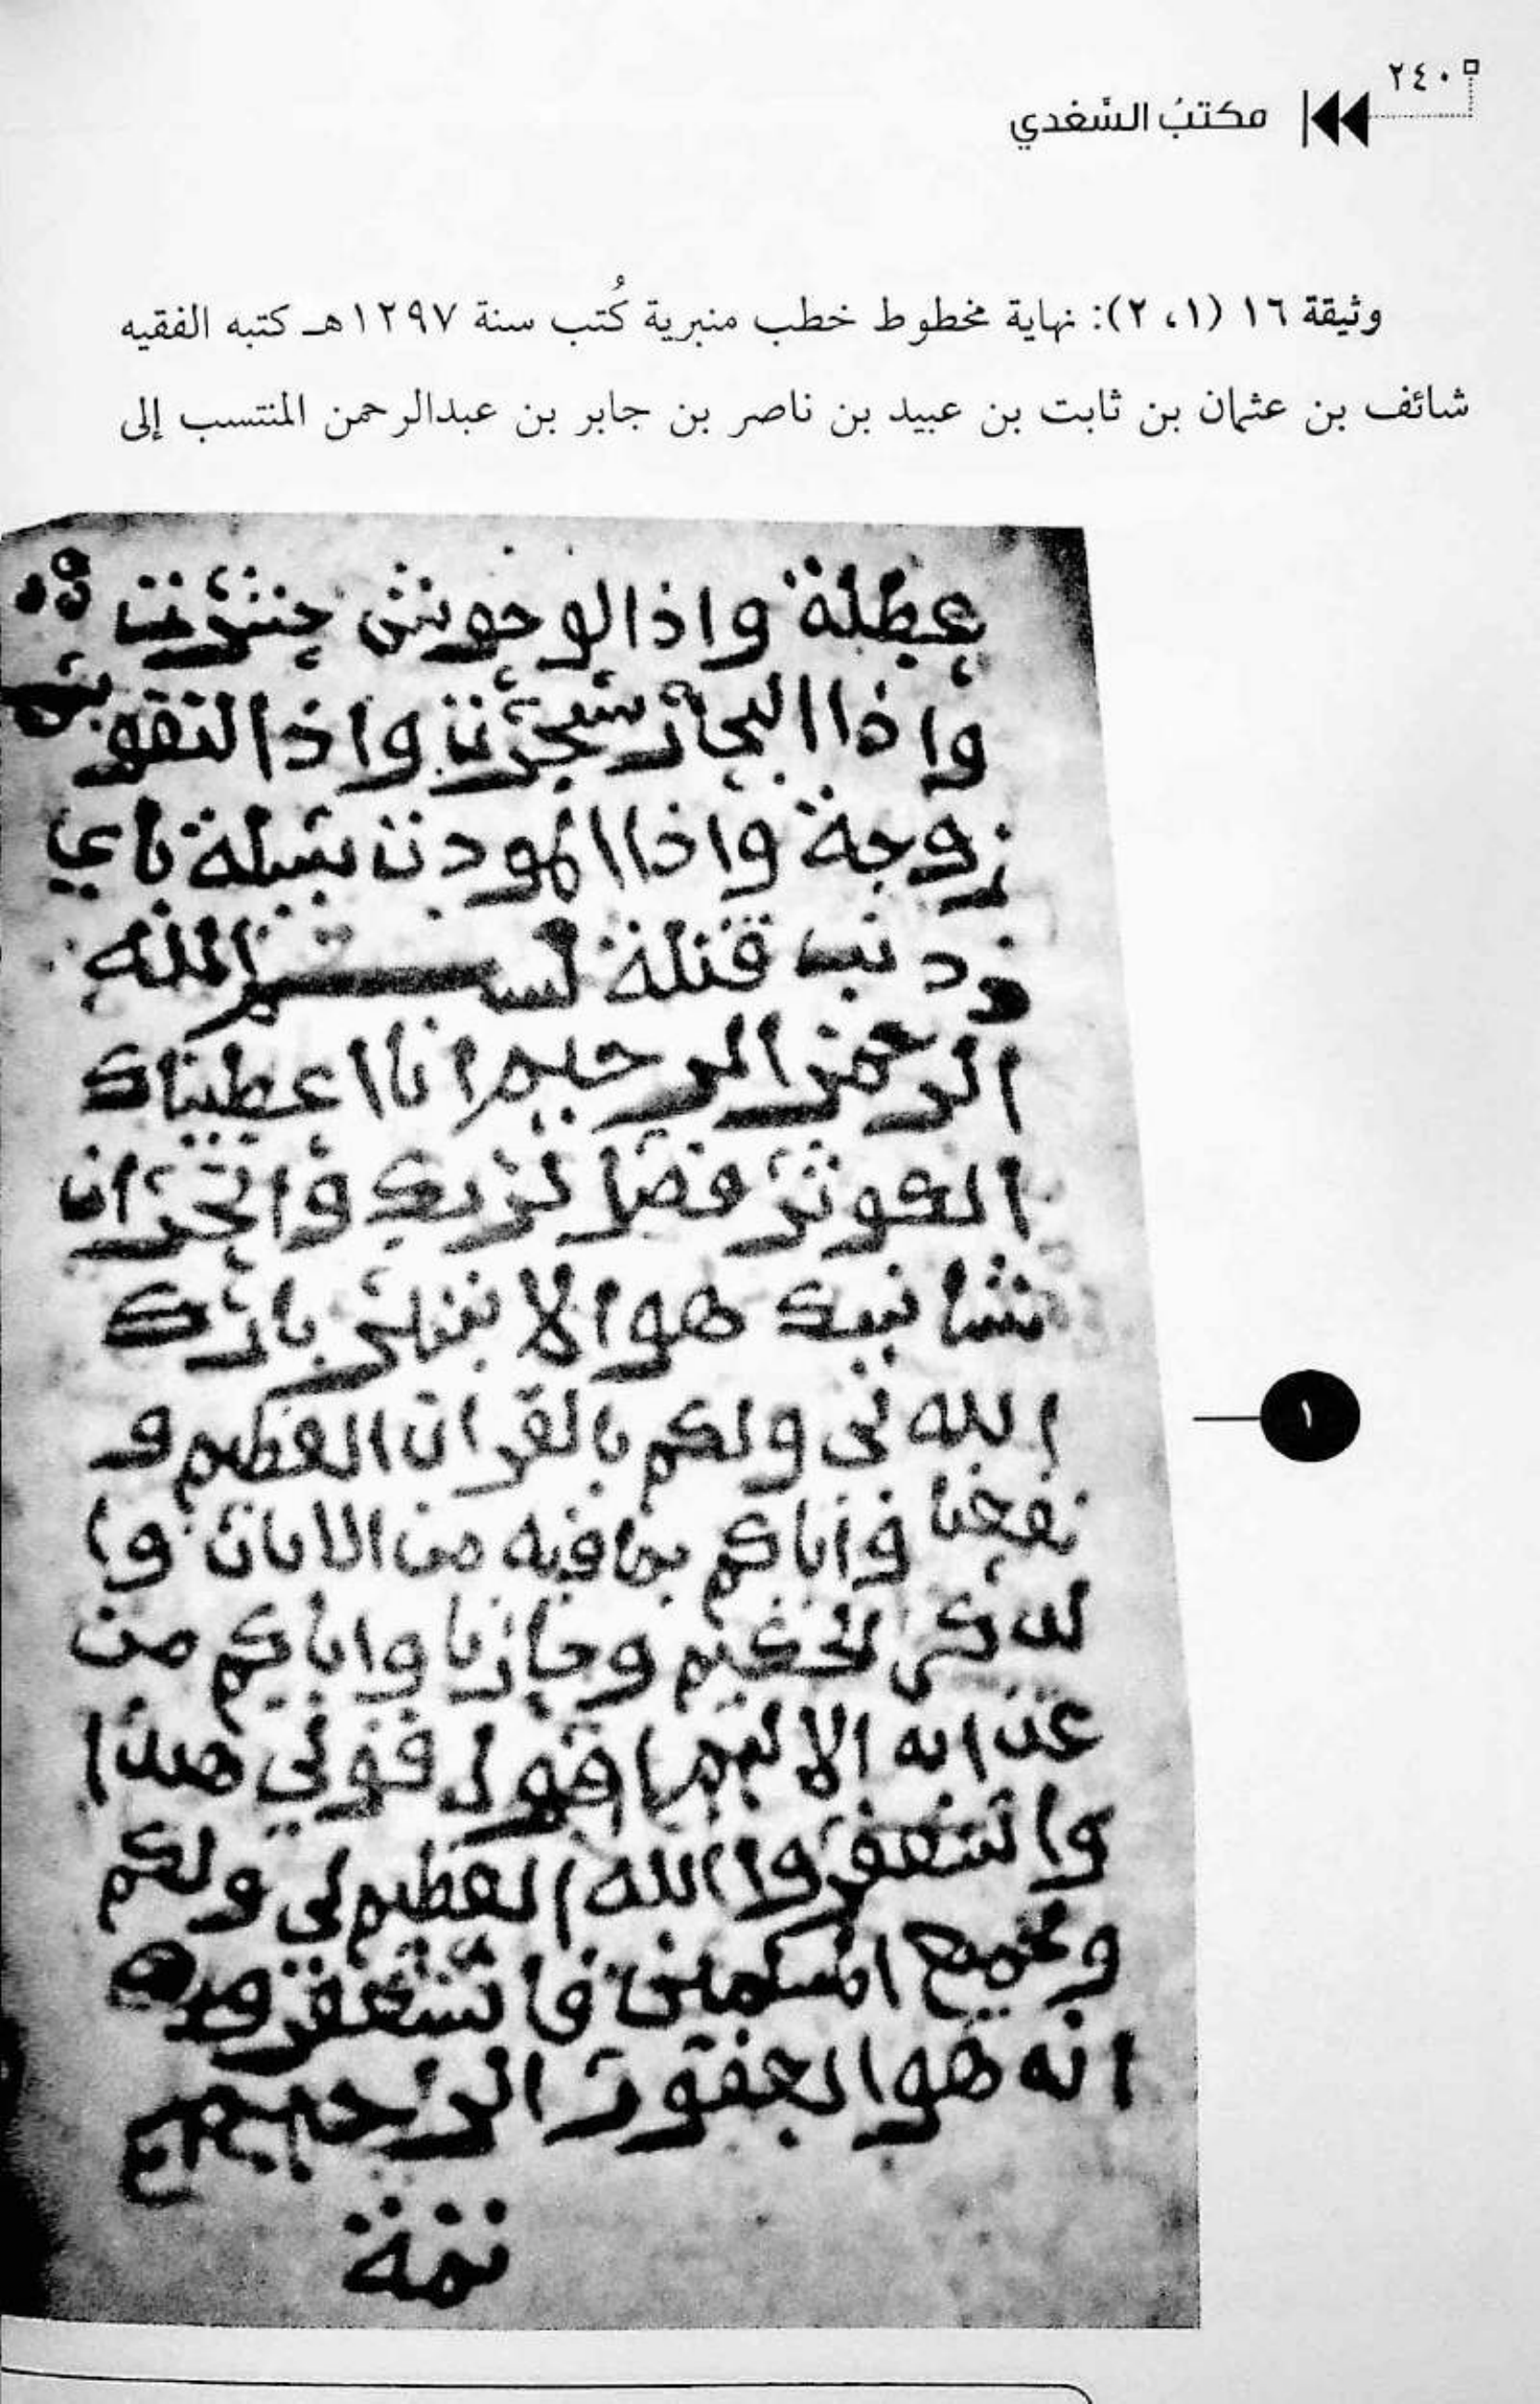 ٢٤٠
مكتبُ السَّعْدي
وثيقة ١٦ (١، ٢): نهاية مخطوط خطب منبرية كُتب سنة ١٢٩٧هـ كتبه الفقيه
شائف بن عثمان بن ثابت بن عبيد بن ناصر بن جابر بن عبدالرحمن المنتسب إلى
عطلة واذا الوحوش حشرت
واذا البحار سجرت واذا النفو
زوجة واذا المودت سيلة باي
ذنب قتلة بسم الله
الرحمن الرحيم انا اعطيناك
الكوثر فصل لربك وانحر ان
شانيك هو الابتر بارك
الله لي ولكم بالقران العظيم و
نفعنا واياكم بما فيه من الايات وا
لدكر الحكيم وجارنا واياكم من
عذابه الاليم اقول قولي هذا
واستغفروا الله العظيم لي ولكم
ولجميع المسلمين فاستغفروه
انه هو الغفور الرحيم
تمة
١